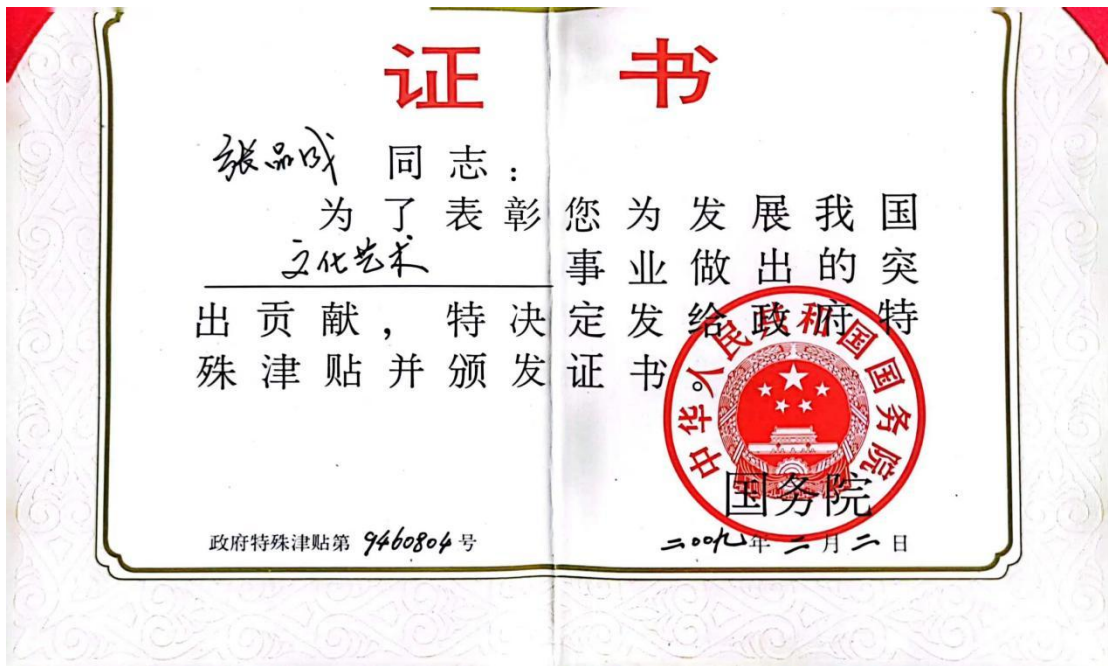 证 书
张品成 同志：
为了表彰您为发展我国
文化艺术 事业做出的突
出贡献，特决定发给政府特
殊津贴并颁发证书。
中华人民共和国国务院
国务院
政府特殊津贴第 9460804 号
二〇〇九年 二 月 二 日